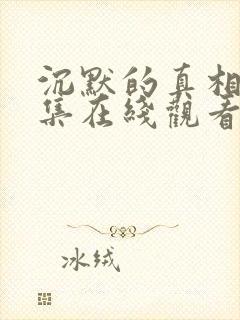 沉默的真相
集在綫觀看
冰绒